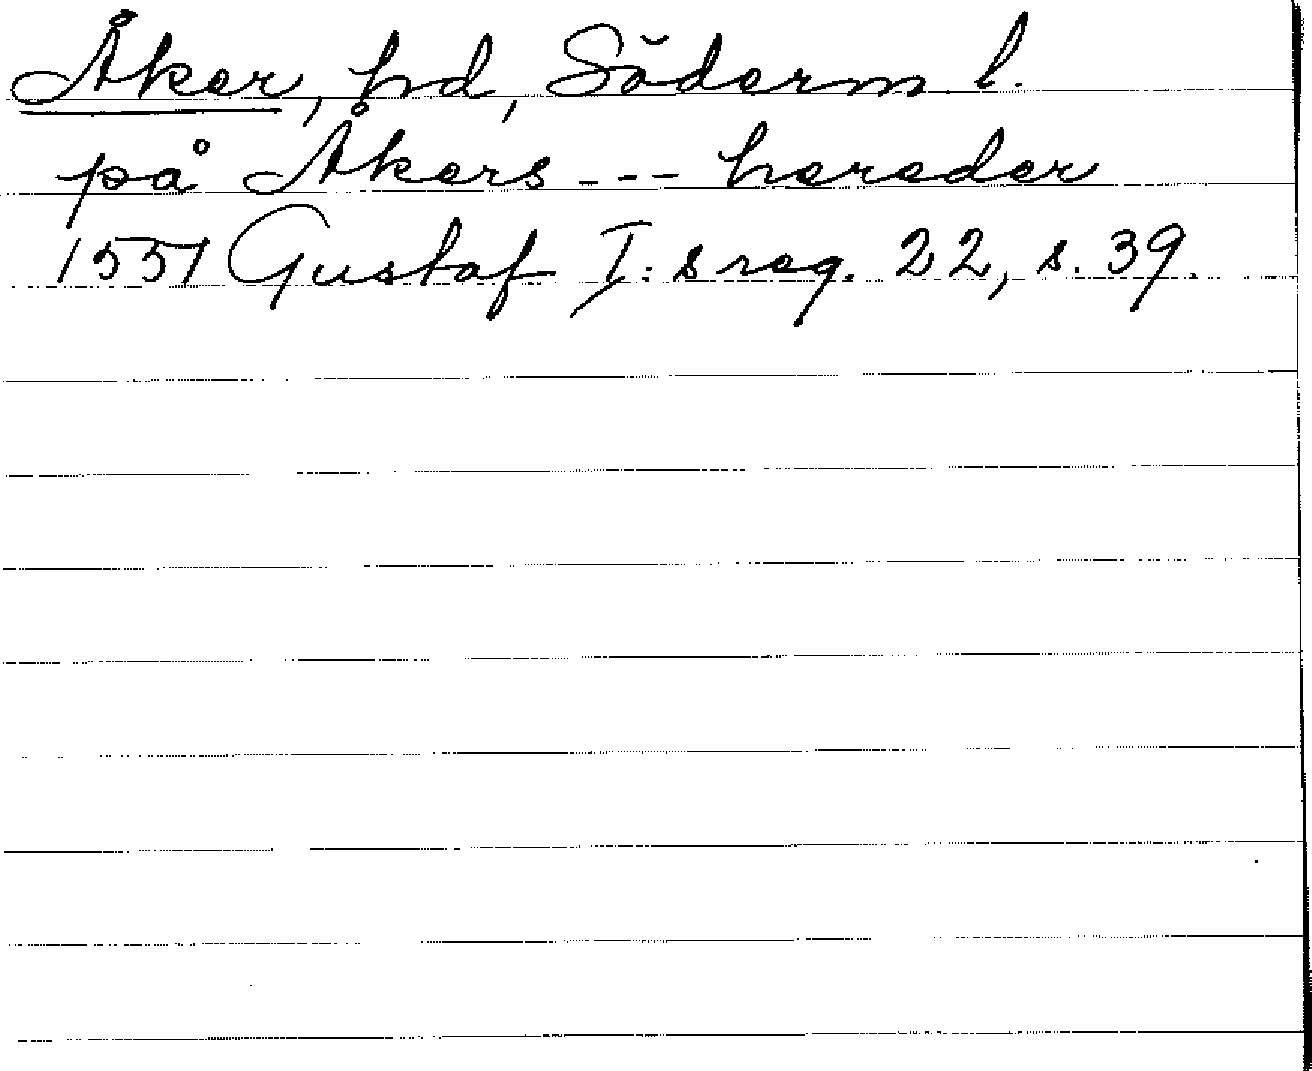 Åker, hd, Söderm. l.
på Åkers --- hereder
1551 Gustaf I:s reg. 22, s. 39.